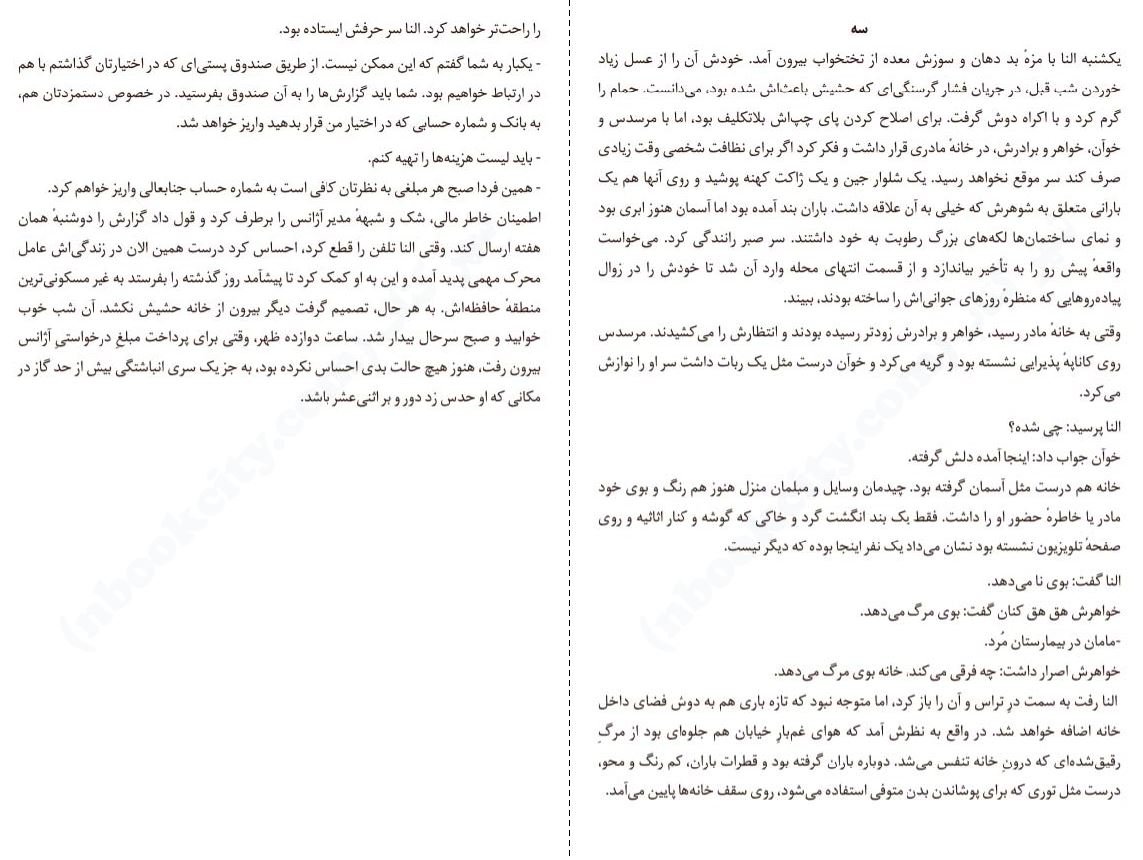 را راحت‌تر خواهد کرد. النا سر حرفش ایستاده بود.
- یکبار به شما گفتم که این ممکن نیست. از طریق صندوق پستی‌ای که در اختیارتان گذاشتم با هم
در ارتباط خواهیم بود. شما باید گزارش‌ها را به آن صندوق بفرستید. در خصوص دستمزدتان هم،
به بانک و شماره حسابی که در اختیار من قرار بدهید واریز خواهد شد.
- باید لیست هزینه‌ها را تهیه کنم.
- همین فردا صبح هر مبلغی به نظرتان کافی است به شماره حساب جنابعالی واریز خواهم کرد.
اطمینان خاطر مالی، شک و شبههٔ مدیر آژانس را برطرف کرد و قول داد گزارش را دوشنبهٔ همان
هفته ارسال کند. وقتی النا تلفن را قطع کرد، احساس کرد درست همین الان در زندگی‌اش عامل
محرک مهمی پدید آمده و این به او کمک کرد تا پیشآمد روز گذشته را بفرستد به غیر مسکونی‌ترین
منطقهٔ حافظه‌اش. به هر حال، تصمیم گرفت دیگر بیرون از خانه حشیش نکشد. آن شب خوب
خوابید و صبح سرحال بیدار شد. ساعت دوازده ظهر، وقتی برای پرداخت مبلغِ درخواستیِ آژانس
بیرون رفت، هنوز هیچ حالت بدی احساس نکرده بود، به جز یک سری انباشتگی بیش از حد گاز در
مکانی که او حدس زد دور و بر اثنی‌عشر باشد.
سه
یکشنبه النا با مزهٔ بد دهان و سوزش معده از تختخواب بیرون آمد. خودش آن را از عسل زیاد
خوردن شب قبل، در جریان فشار گرسنگی‌ای که حشیش باعث‌اش شده بود، می‌دانست. حمام را
گرم کرد و با اکراه دوش گرفت. برای اصلاح کردن پای چپ‌اش بلاتکلیف بود، اما با مرسدس و
خوآن، خواهر و برادرش، در خانهٔ مادری قرار داشت و فکر کرد اگر برای نظافت شخصی وقت زیادی
صرف کند سر موقع نخواهد رسید. یک شلوار جین و یک ژاکت کهنه پوشید و روی آنها هم یک
بارانی متعلق به شوهرش که خیلی به آن علاقه داشت. باران بند آمده بود اما آسمان هنوز ابری بود
و نمای ساختمان‌ها لکه‌های بزرگ رطوبت به خود داشتند. سر صبر رانندگی کرد. می‌خواست
واقعهٔ پیش رو را به تأخیر بیاندازد و از قسمت انتهای محله وارد آن شد تا خودش را در زوال
پیاده‌روهایی که منظرهٔ روزهای جوانی‌اش را ساخته بودند، ببیند.
وقتی به خانهٔ مادر رسید، خواهر و برادرش زودتر رسیده بودند و انتظارش را می‌کشیدند. مرسدس
روی کاناپهٔ پذیرایی نشسته بود و گریه می‌کرد و خوآن درست مثل یک ربات داشت سر او را نوازش
می‌کرد.
النا پرسید: چی شده؟
خوآن جواب داد: اینجا آمده دلش گرفته.
خانه هم درست مثل آسمان گرفته بود. چیدمان وسایل و مبلمان منزل هنوز هم رنگ و بوی خود
مادر یا خاطرهٔ حضور او را داشت. فقط یک بند انگشت گرد و خاکی که گوشه و کنار اثاثیه و روی
صفحهٔ تلویزیون نشسته بود نشان می‌داد یک نفر اینجا بوده که دیگر نیست.
النا گفت: بوی نا می‌دهد.
خواهرش هق هق کنان گفت: بوی مرگ می‌دهد.
-مامان در بیمارستان مُرد.
خواهرش اصرار داشت: چه فرقی می‌کند، خانه بوی مرگ می‌دهد.
النا رفت به سمت درِ تراس و آن را باز کرد، اما متوجه نبود که تازه باری هم به دوش فضای داخل
خانه اضافه خواهد شد. در واقع به نظرش آمد که هوای غم‌بارِ خیابان هم جلوه‌ای بود از مرگِ
رقیق‌شده‌ای که درونِ خانه تنفس می‌شد. دوباره باران گرفته بود و قطرات باران، کم رنگ و محو،
درست مثل توری که برای پوشاندن بدن متوفی استفاده می‌شود، روی سقف خانه‌ها پایین می‌آمد.
(nbookcity.com
(nbookcity.com